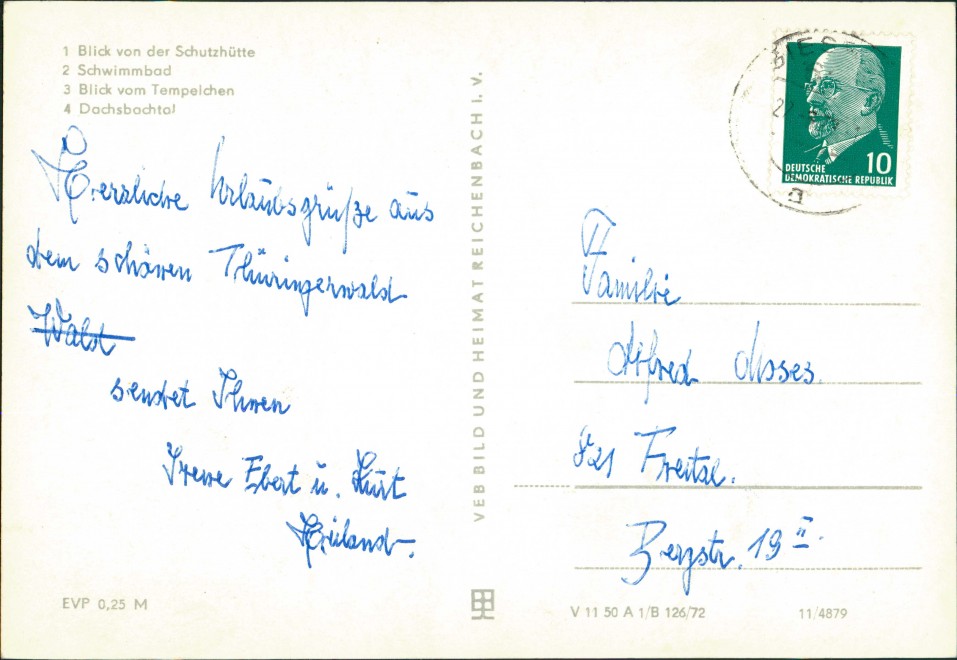 1 Blick von der Schutzhütte
2 Schwimmbad
3 Blick vom Tempelchen
4 Dachsbachtal
Herzliche Urlaubsgrüße aus
dem schönen Thüringerwald
Wald
sendet Ihnen
Irene Ebert u. Kurt
Heiland.
EVP 0,25 M
VEB BILD UND HEIMAT REICHENBACH I. V.
DEUTSCHE
DEMOKRATISCHE REPUBLIK
10
a
Familie
Alfred
821 Freital.
Bergstr. 19 II.
V 11 50 A 1/B 126/72
11/4879